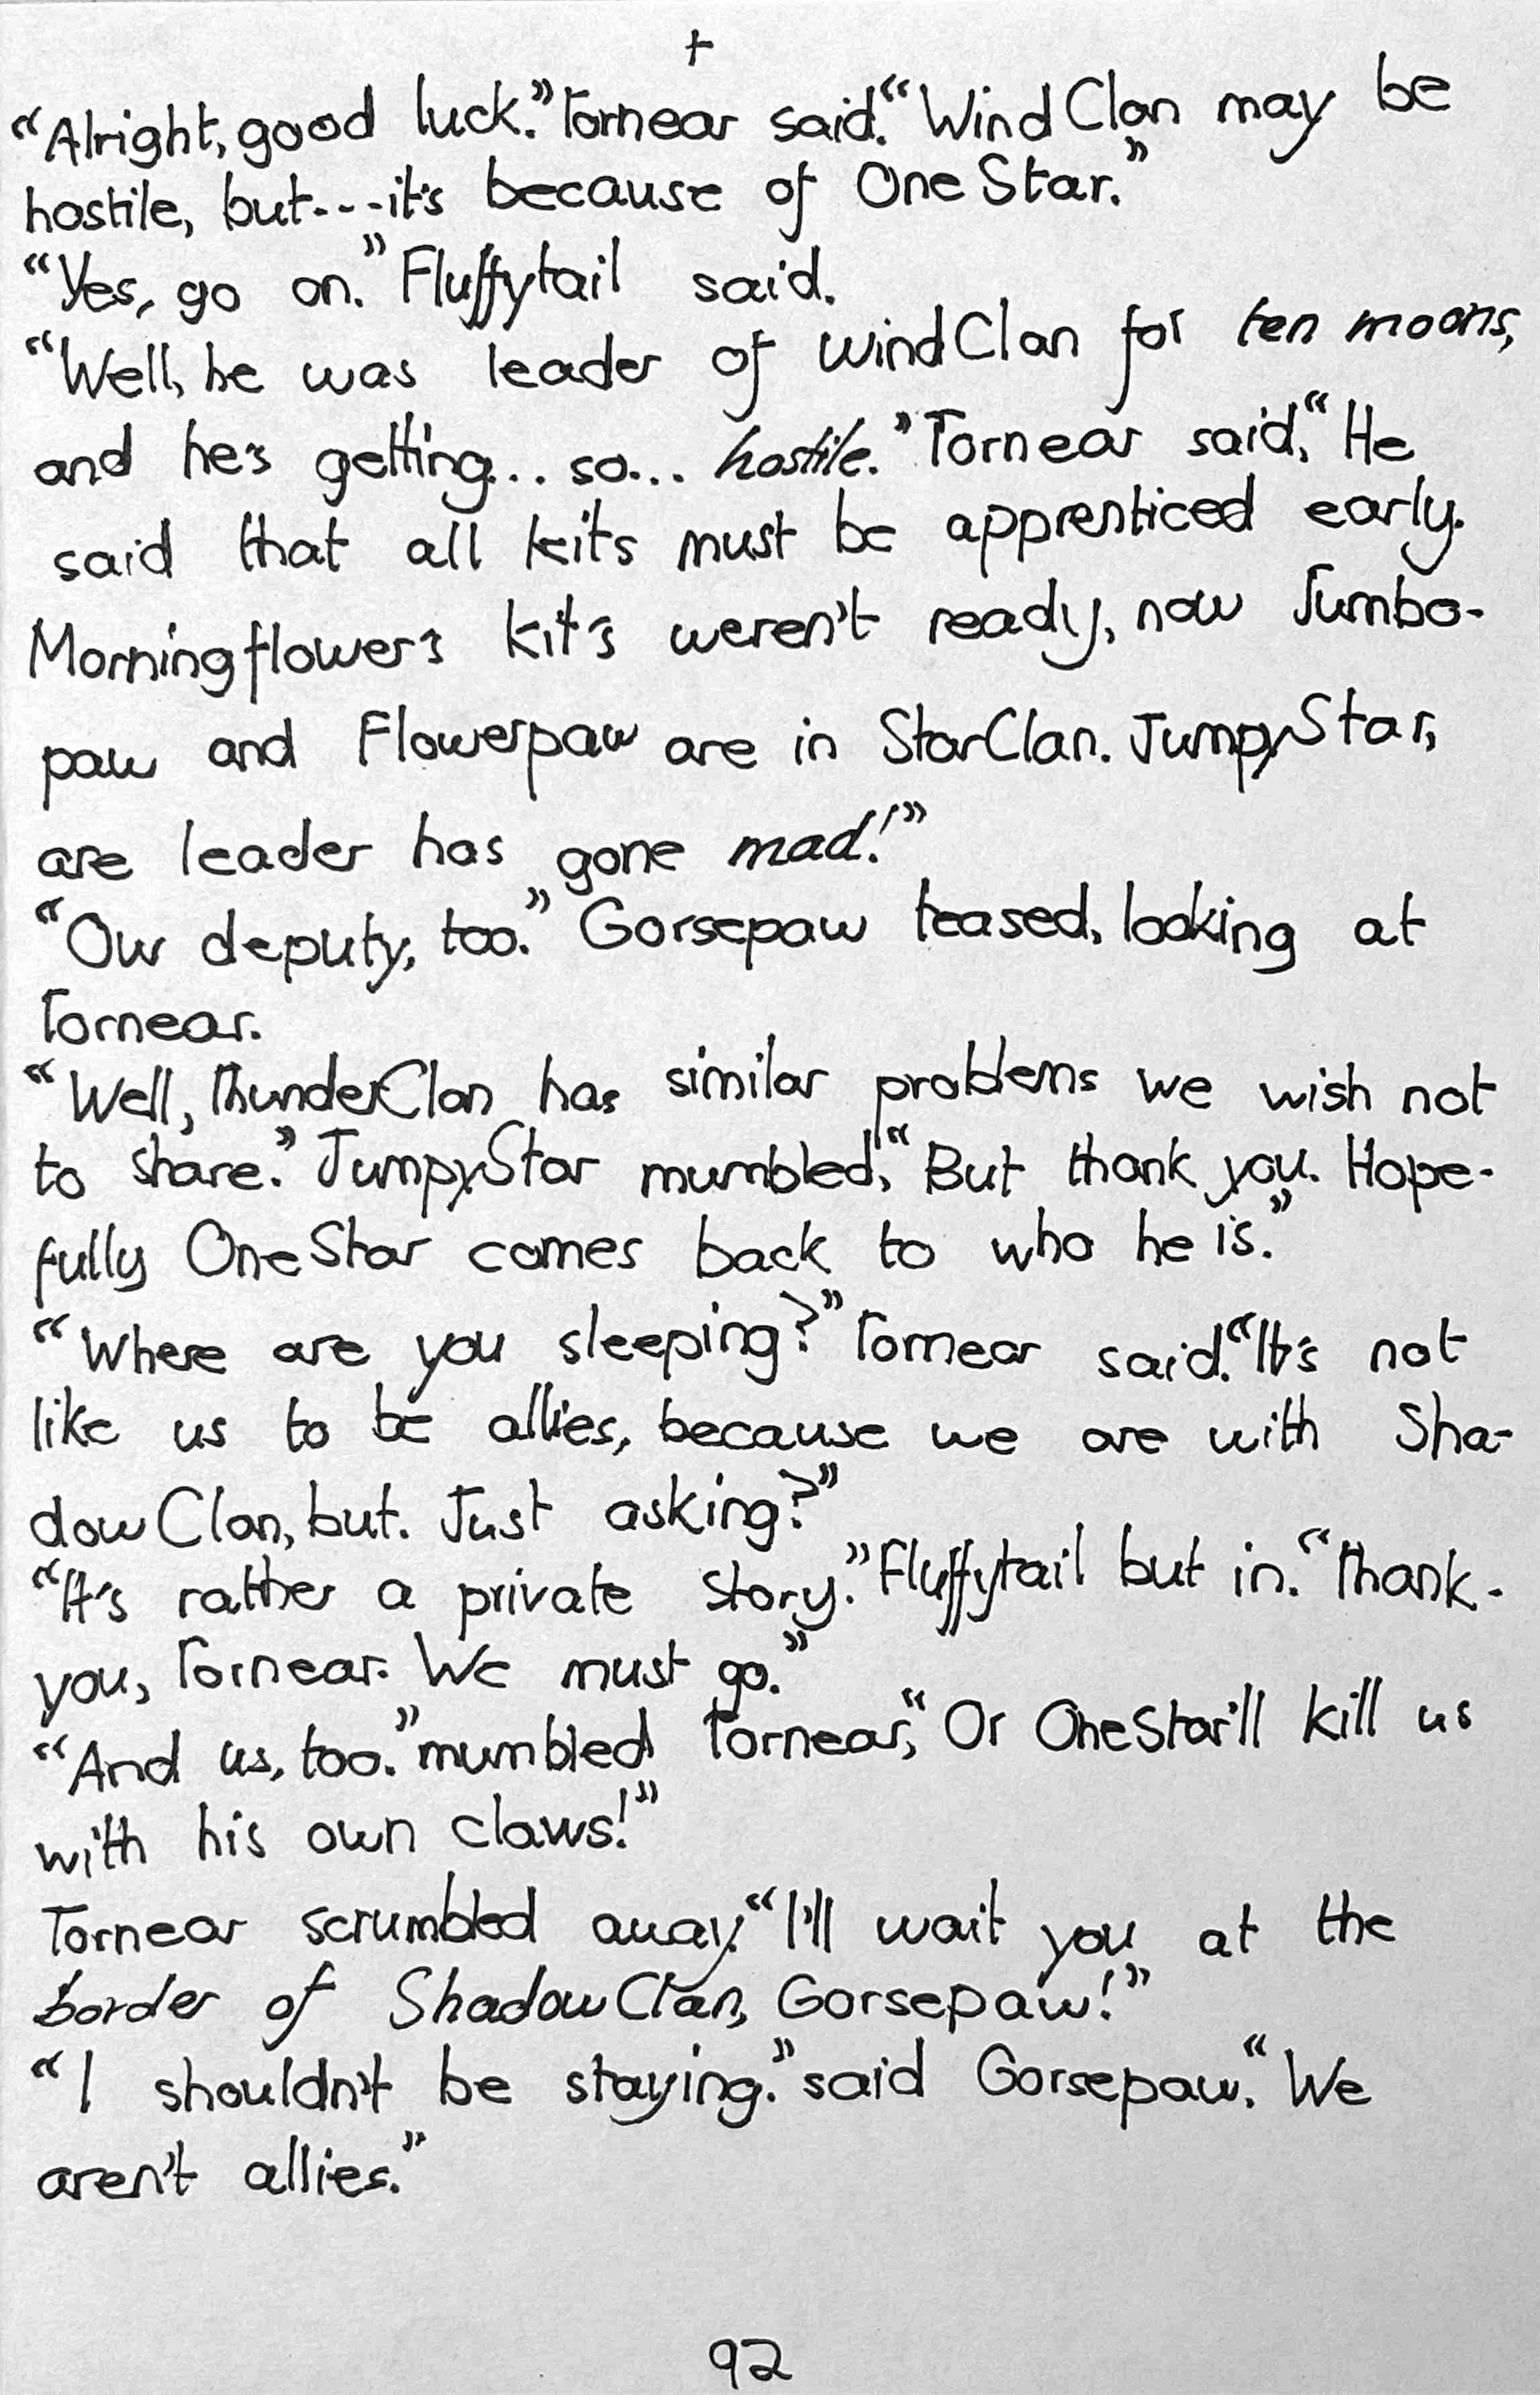 +
“Alright, good luck.” Tornear said. “WindClan may be
hostile, but---it's because of OneStar.”
“Yes, go on.” Fluffytail said.
“Well, he was leader of windClan for ten moons,
and he's getting... so... hostile.” Tornear said, “He
said that all kits must be apprenticed early.
Morningflower's kit's weren't ready, now Jumbo-
paw and Flowerpaw are in StarClan. JumpyStar,
are leader has gone mad!”
“Our deputy, too.” Gorsepaw teased, looking at
Tornear.
“Well, ThunderClan has similar problems we wish not
to share.” JumpyStar mumbled, “But thank you. Hope-
fully OneStar comes back to who he is.”
“Where are you sleeping?” Tornear said. “It's not
like us to be allies, because we are with Sha-
dowClan, but. Just asking?”
“It's rather a private story.” Fluffytail but in. “Thank-
you, Tornear. We must go.”
“And us, too.” mumbled Tornear, “Or OneStar'll kill us
with his own claws!”
Tornear scrumbled away. “I'll wait you at the
border of ShadowClan, Gorsepaw!”
“I shouldn't be staying.” said Gorsepaw. “We
aren't allies.”
92